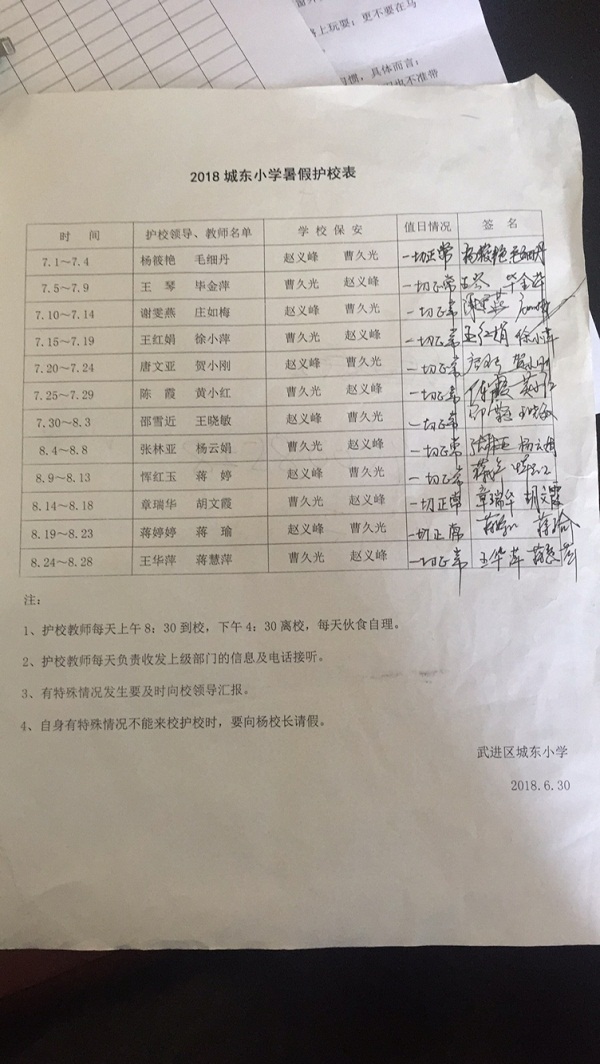 上玩耍；更不要在马
惯，具体而言：
也不准带
2018 城东小学暑假护校表
时 间 护校领导、教师名单 学 校 保 安 值日情况 签 名
7.1～7.4 杨筱艳 毛细丹 赵义峰 曹久光 一切正常 杨筱艳 毛细丹
7.5～7.9 王 琴 毕金萍 曹久光 赵义峰 一切正常 王琴 毕金萍
7.10～7.14 谢雯燕 庄如梅 赵义峰 曹久光 一切正常 谢雯燕
7.15～7.19 王红娟 徐小萍 曹久光 赵义峰 一切正常 王红娟 徐小萍
7.20～7.24 唐文亚 贺小刚 赵义峰 曹久光 一切正常 贺小刚
7.25～7.29 陈 霞 黄小红 曹久光 赵义峰 一切正常 陈霞
7.30～8.3 邵雪近 王晓敏 赵义峰 曹久光 一切正常 王晓敏
8.4～8.8 张林亚 杨云娟 曹久光 赵义峰 一切正常 张林亚 杨云娟
8.9～8.13 恽红玉 蒋 婷 赵义峰 曹久光 一切正常 蒋婷
8.14～8.18 章瑞华 胡文霞 曹久光 赵义峰 一切正常 章瑞华 胡文霞
8.19～8.23 蒋婷婷 蒋 瑜 赵义峰 曹久光 一切正常 蒋瑜
8.24～8.28 王华萍 蒋慧萍 曹久光 赵义峰 一切正常 王华萍 蒋慧萍
注：
1、护校教师每天上午 8：30 到校，下午 4：30 离校，每天伙食自理。
2、护校教师每天负责收发上级部门的信息及电话接听。
3、有特殊情况发生要及时向校领导汇报。
4、自身有特殊情况不能来校护校时，要向杨校长请假。
武进区城东小学
2018.6.30